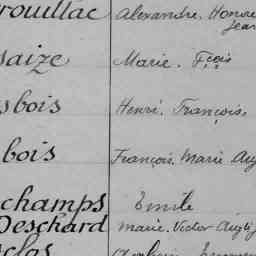 rouillac Alexandre, Honoré
Jean
saize Marie. Fçois
sbois Henri. François.
bois François. Marie Aug
champs Emile
Deschard Marie. Victor Augu